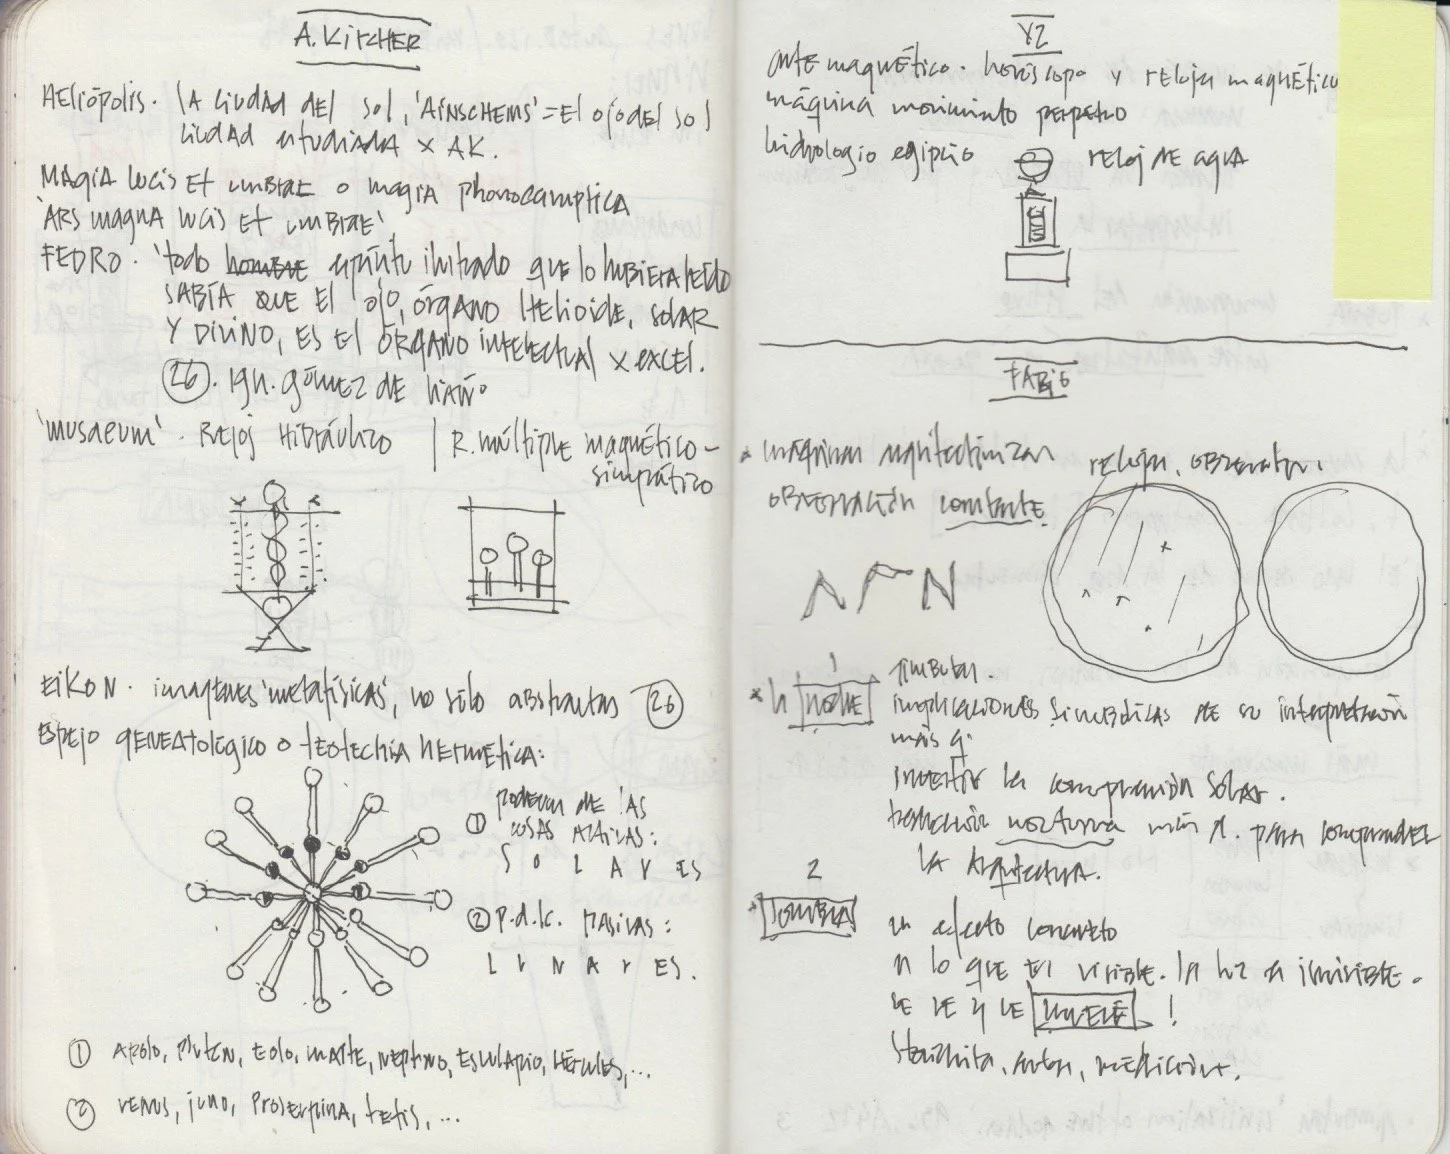 A. KIRCHER
HELIÓPOLIS. LA CIUDAD DEL SOL, 'AINSCHEMS' = El ojo del sol
CIUDAD estudiada x AK.
MAGIA lucis ET UMBRAE o magia phonocamptica
'ARS MAGNA lucis ET UMBRAE'
FEDRO. 'todo hombre espíritu ilustrado que lo hubiera leído
SABÍA QUE El ojo, órgano HELIOIDE, solar
Y DIVINO, ES El ÓRGANO intelectual x excel.
26. IGN. GÓMEZ DE LIAÑO
'musaeum'. RELOJ HIDRÁULICO | R. múltiple magnético-
simpático
EIKON. imágenes 'metafísicas', no sólo abstractas 26
ESPEJO GENEATOLÓGICO o teotechia hermética:
1 poderes DE LAS
COSAS ACTIVAS:
S O L A R ES
2 p.d.l.c. PASIVAS:
L U N A R ES.
1 APOLO, Plutón, EOLO, MARTE, NEPTUNO, ESCULAPIO, HÉRCULES, ...
2 VENUS, juno, PROSERPINA, tetis, ...
Y2
ARTE magnético. horóscopo y reloj magnético
máquina movimiento perpetuo
hidrologio egipcio reloj DE agua
FABIO
máquinas arquitectónicas relojes, observator.
OBSERVACIÓN constante.
1
NOCHE
implicaciones simbólicas DE su interpretación
más q.
invertir la comprensión solar.
nocturna más para comprender
la Arquitectura.
2
SOMBRA
un efecto concreto
lo que es visible. la luz es invisible.
SE VE y SE MUEVE !
Stoichita, medición.